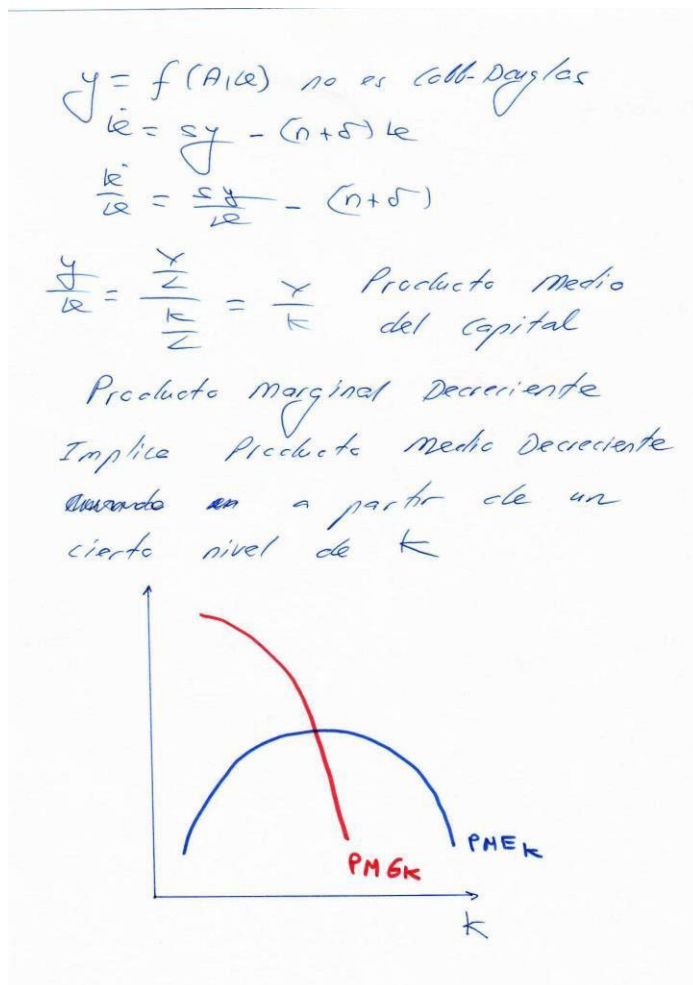 y = f(A,k) no es Cobb-Douglas
k̇ = sy - (n+δ)k
k̇/k = sy/k - (n+δ)
y/k = (Y/L)/(K/L) = Y/K Producto Medio
del Capital
Producto Marginal Decreciente
Implica Producto Medio Decreciente
a partir de un
cierto nivel de K
PMGK
PMEK
K